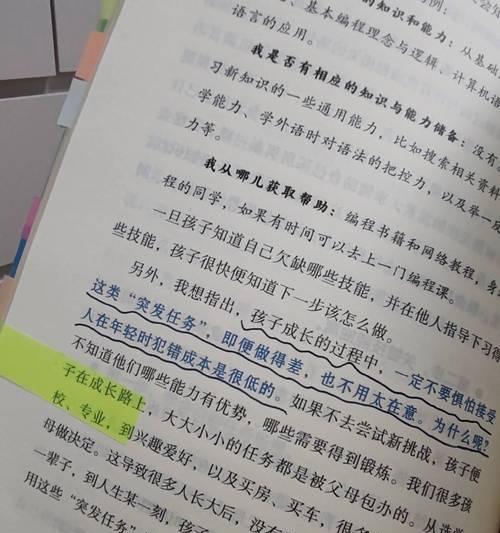 的知识和能力：从基础
、基本编程理念与逻辑、计算机语
语言的应用。
我是否有相应的知识与能力储备：没有
习新知识的一些通用能力，比如搜索相关资料
学能力、学外语时对语法的把控力，以及举一反
力等。
我从哪儿获取帮助：编程书籍和网络教程，身
程的同学，如果有时间可以去上一门编程课。
一旦孩子知道自己欠缺哪些技能，并在他人指导下习得
些技能，孩子很快便知道下一步该怎么做。
另外，我想指出，孩子成长的过程中，一定不要惧怕接受
这类“突发任务”，即便做得差，也不用太在意。为什么呢？
人在年轻时犯错成本是很低的。如果不去尝试新挑战，孩子便
不知道他们哪些能力有优势，哪些需要得到锻炼。我们很多孩
子在成长路上，大大小小的任务都是被父母包办的。从选学
校、专业，到兴趣爱好，以及买房、买车，很多
母做决定。这导致很多人长大后，没有
一辈子，到人生某一刻，孩子
用这些“突发任务”